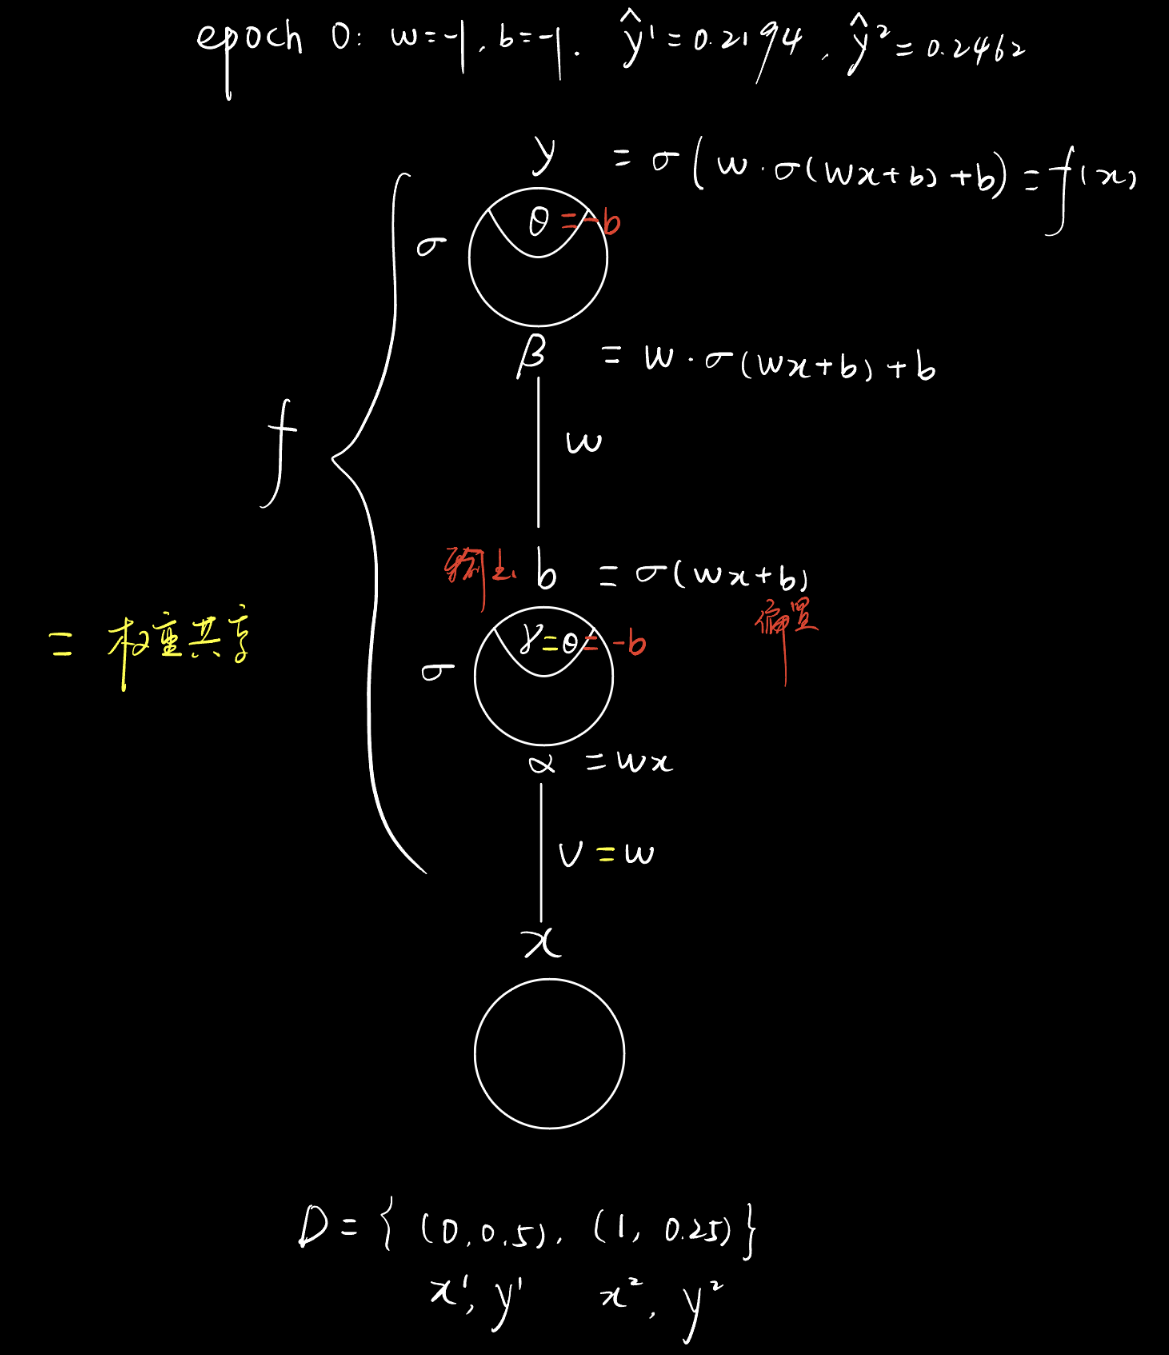 epoch 0: w=-1, b=-1. ŷ¹=0.2194, ŷ²=0.2462
y = σ(w·σ(wx+b)+b)=f(x)
θ=-b
σ
β = w·σ(wx+b)+b
f
w
输出 b = σ(wx+b)
偏置
= 权重共享
γ=θ=-b
σ
α = wx
v=w
x
D={(0,0.5), (1, 0.25)}
x¹, y¹ x², y²